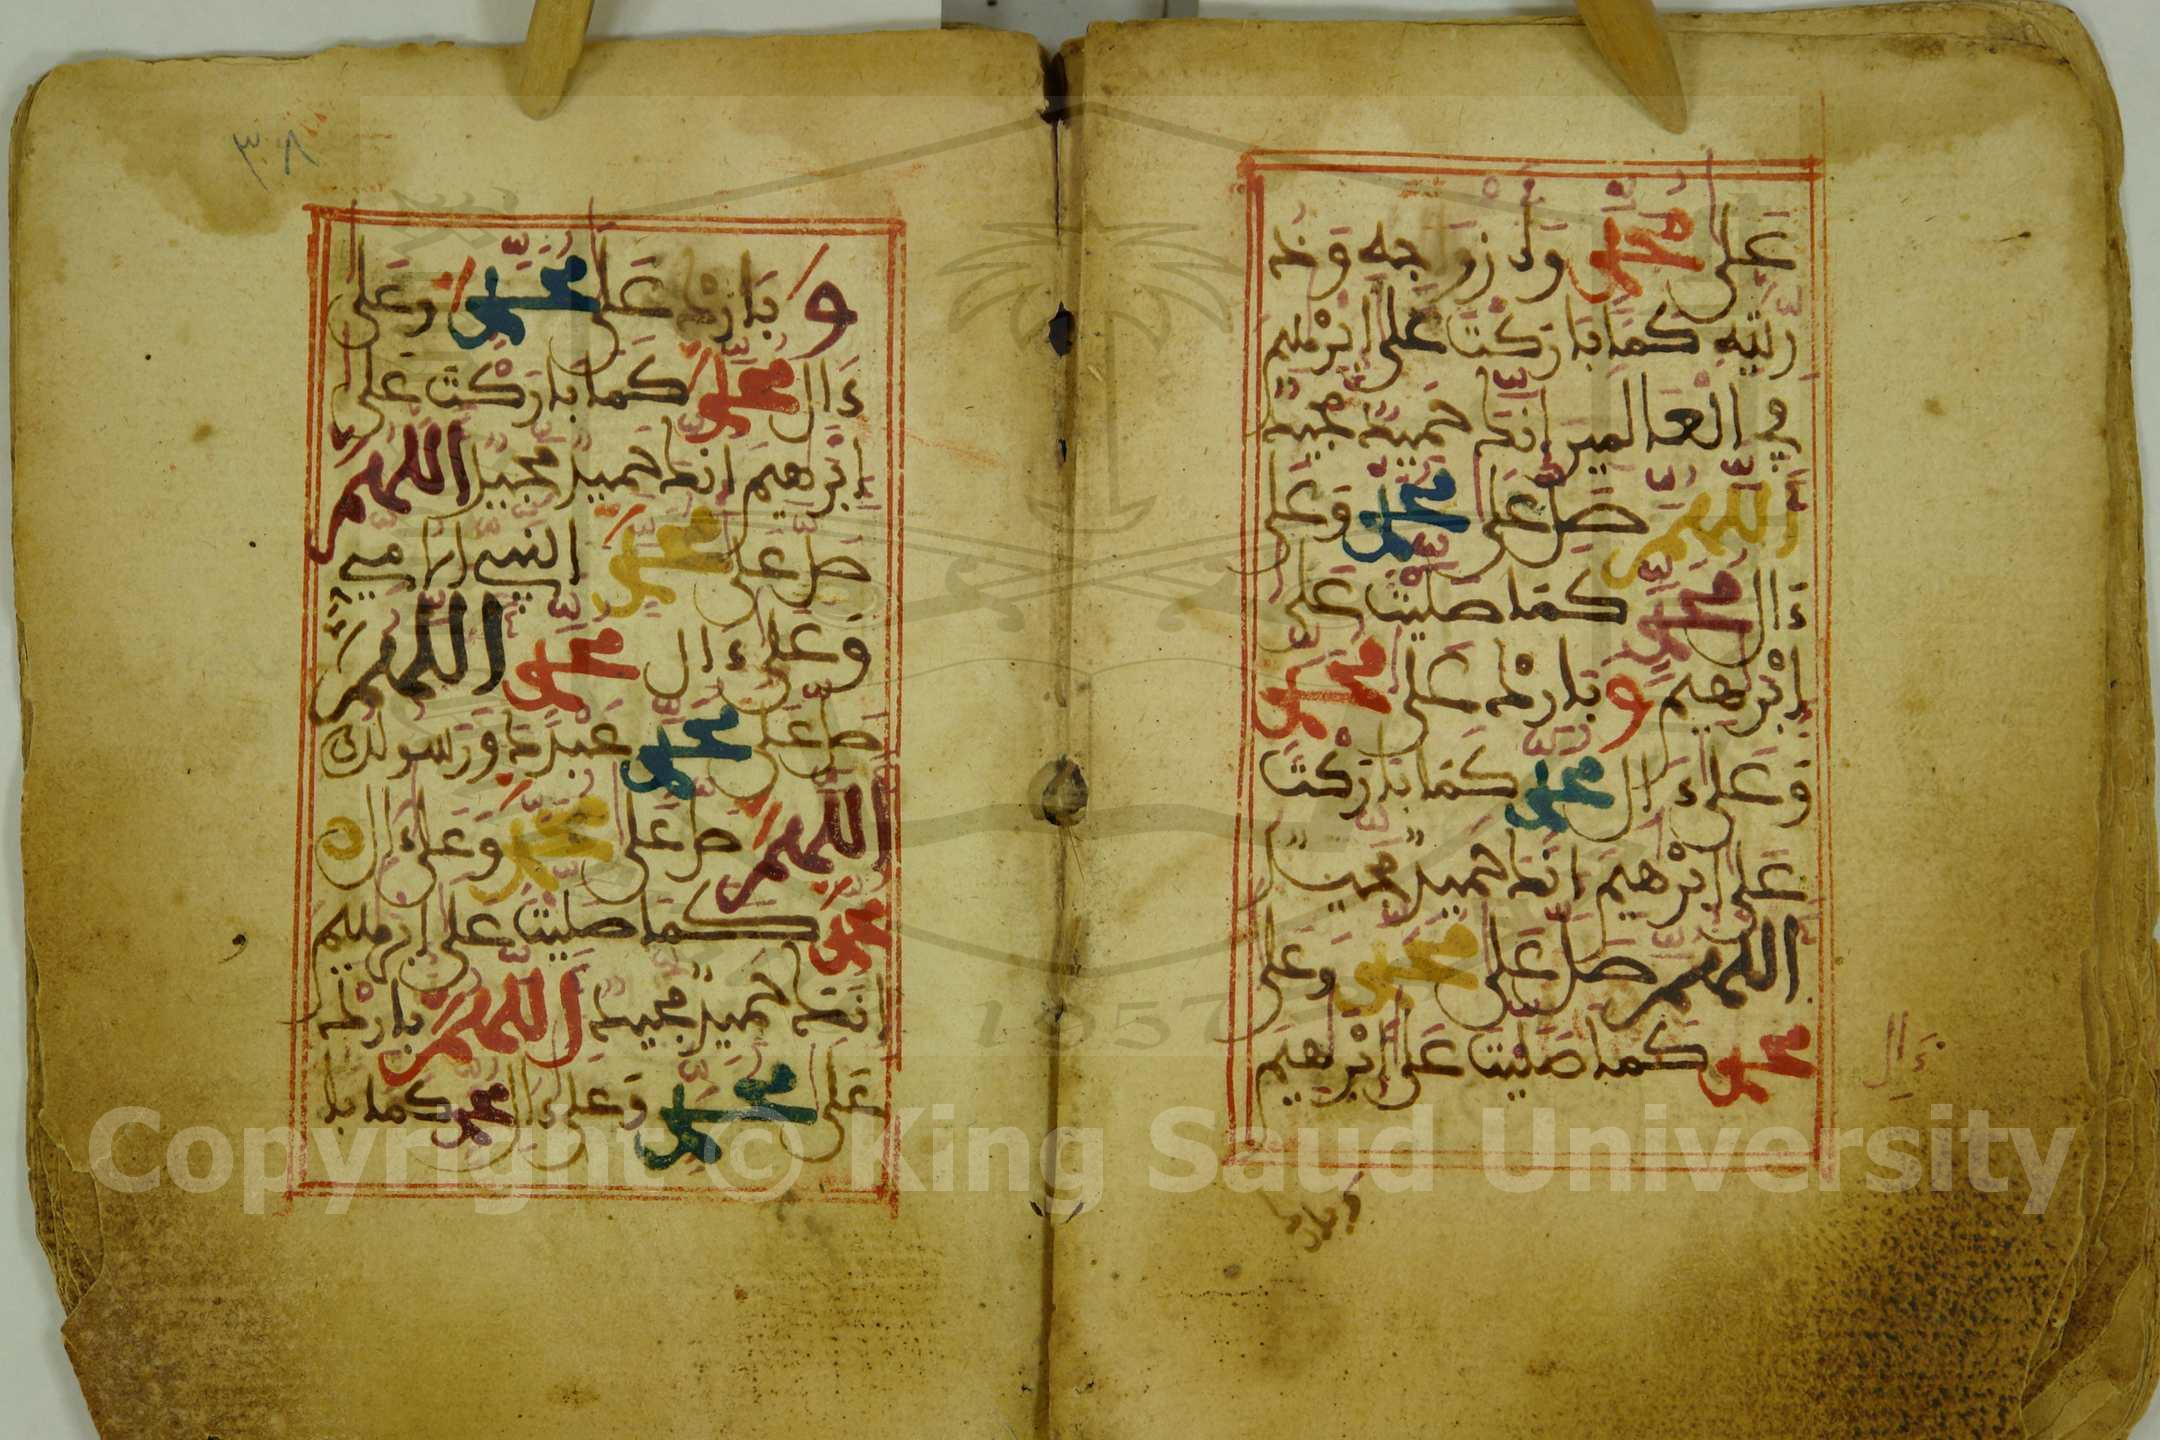 عَلَى مُحَمَّدٍ وَأَزْوَاجِهِ وَذُ
رِّيَّتِهِ كَمَا بَارَكْتَ عَلَى إِبْرَهِيمَ
فِي الْعَالَمِينَ إِنَّكَ حَمِيدٌ مَجِيدٌ
اللَّهُمَّ صَلِّ عَلَى مُحَمَّدٍ وَعَلَى
ءَالِ مُحَمَّدٍ كَمَا صَلَّيْتَ عَلَى
إِبْرَهِيمَ وَبَارِكْ عَلَى مُحَمَّدٍ
وَعَلَى ءَالِ مُحَمَّدٍ كَمَا بَارَكْتَ
عَلَى إِبْرَهِيمَ إِنَّكَ حَمِيدٌ مَجِيدٌ
اللَّهُمَّ صَلِّ عَلَى مُحَمَّدٍ وَعَلَى
ءَالِ
مُحَمَّدٍ كَمَا صَلَّيْتَ عَلَى إِبْرَهِيمَ
وبارك
٣٨
وَبَارِكْ عَلَى مُحَمَّدٍ وَعَلَى
ءَالِ مُحَمَّدٍ كَمَا بَارَكْتَ عَلَى
إِبْرَهِيمَ إِنَّكَ حَمِيدٌ مَجِيدٌ اللَّهُمَّ
صَلِّ عَلَى مُحَمَّدٍ النَّبِيِّ الْأُمِّيِّ
وَعَلَى ءَالِ مُحَمَّدٍ اللَّهُمَّ
صَلِّ عَلَى مُحَمَّدٍ عَبْدِكَ وَرَسُولِكَ
اللَّهُمَّ صَلِّ عَلَى مُحَمَّدٍ وَعَلَى ءَالِ
مُحَمَّدٍ كَمَا صَلَّيْتَ عَلَى إِبْرَهِيمَ
إِنَّكَ حَمِيدٌ مَجِيدٌ اللَّهُمَّ بَارِكْ
عَلَى مُحَمَّدٍ وَعَلَى ءَالِ مُحَمَّدٍ كَمَا بَا
1957
Copyright © King Saud University